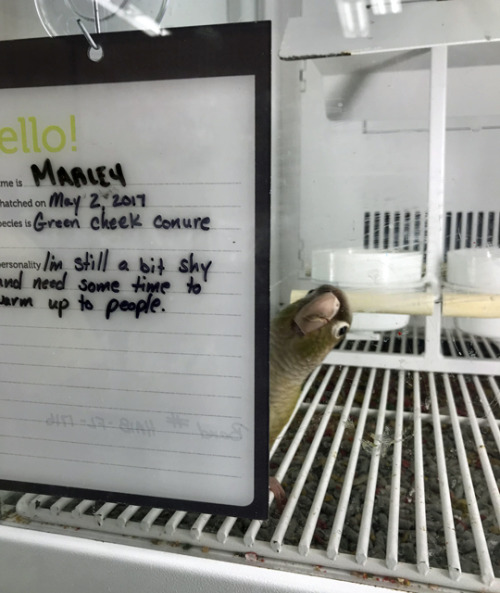 ello!
me is MARLEY
hatched on May 2, 2017
pecies is Green cheek conure
ersonality I'm still a bit shy
and need some time to
warm up to people.
Band # HAIB-FL-1716